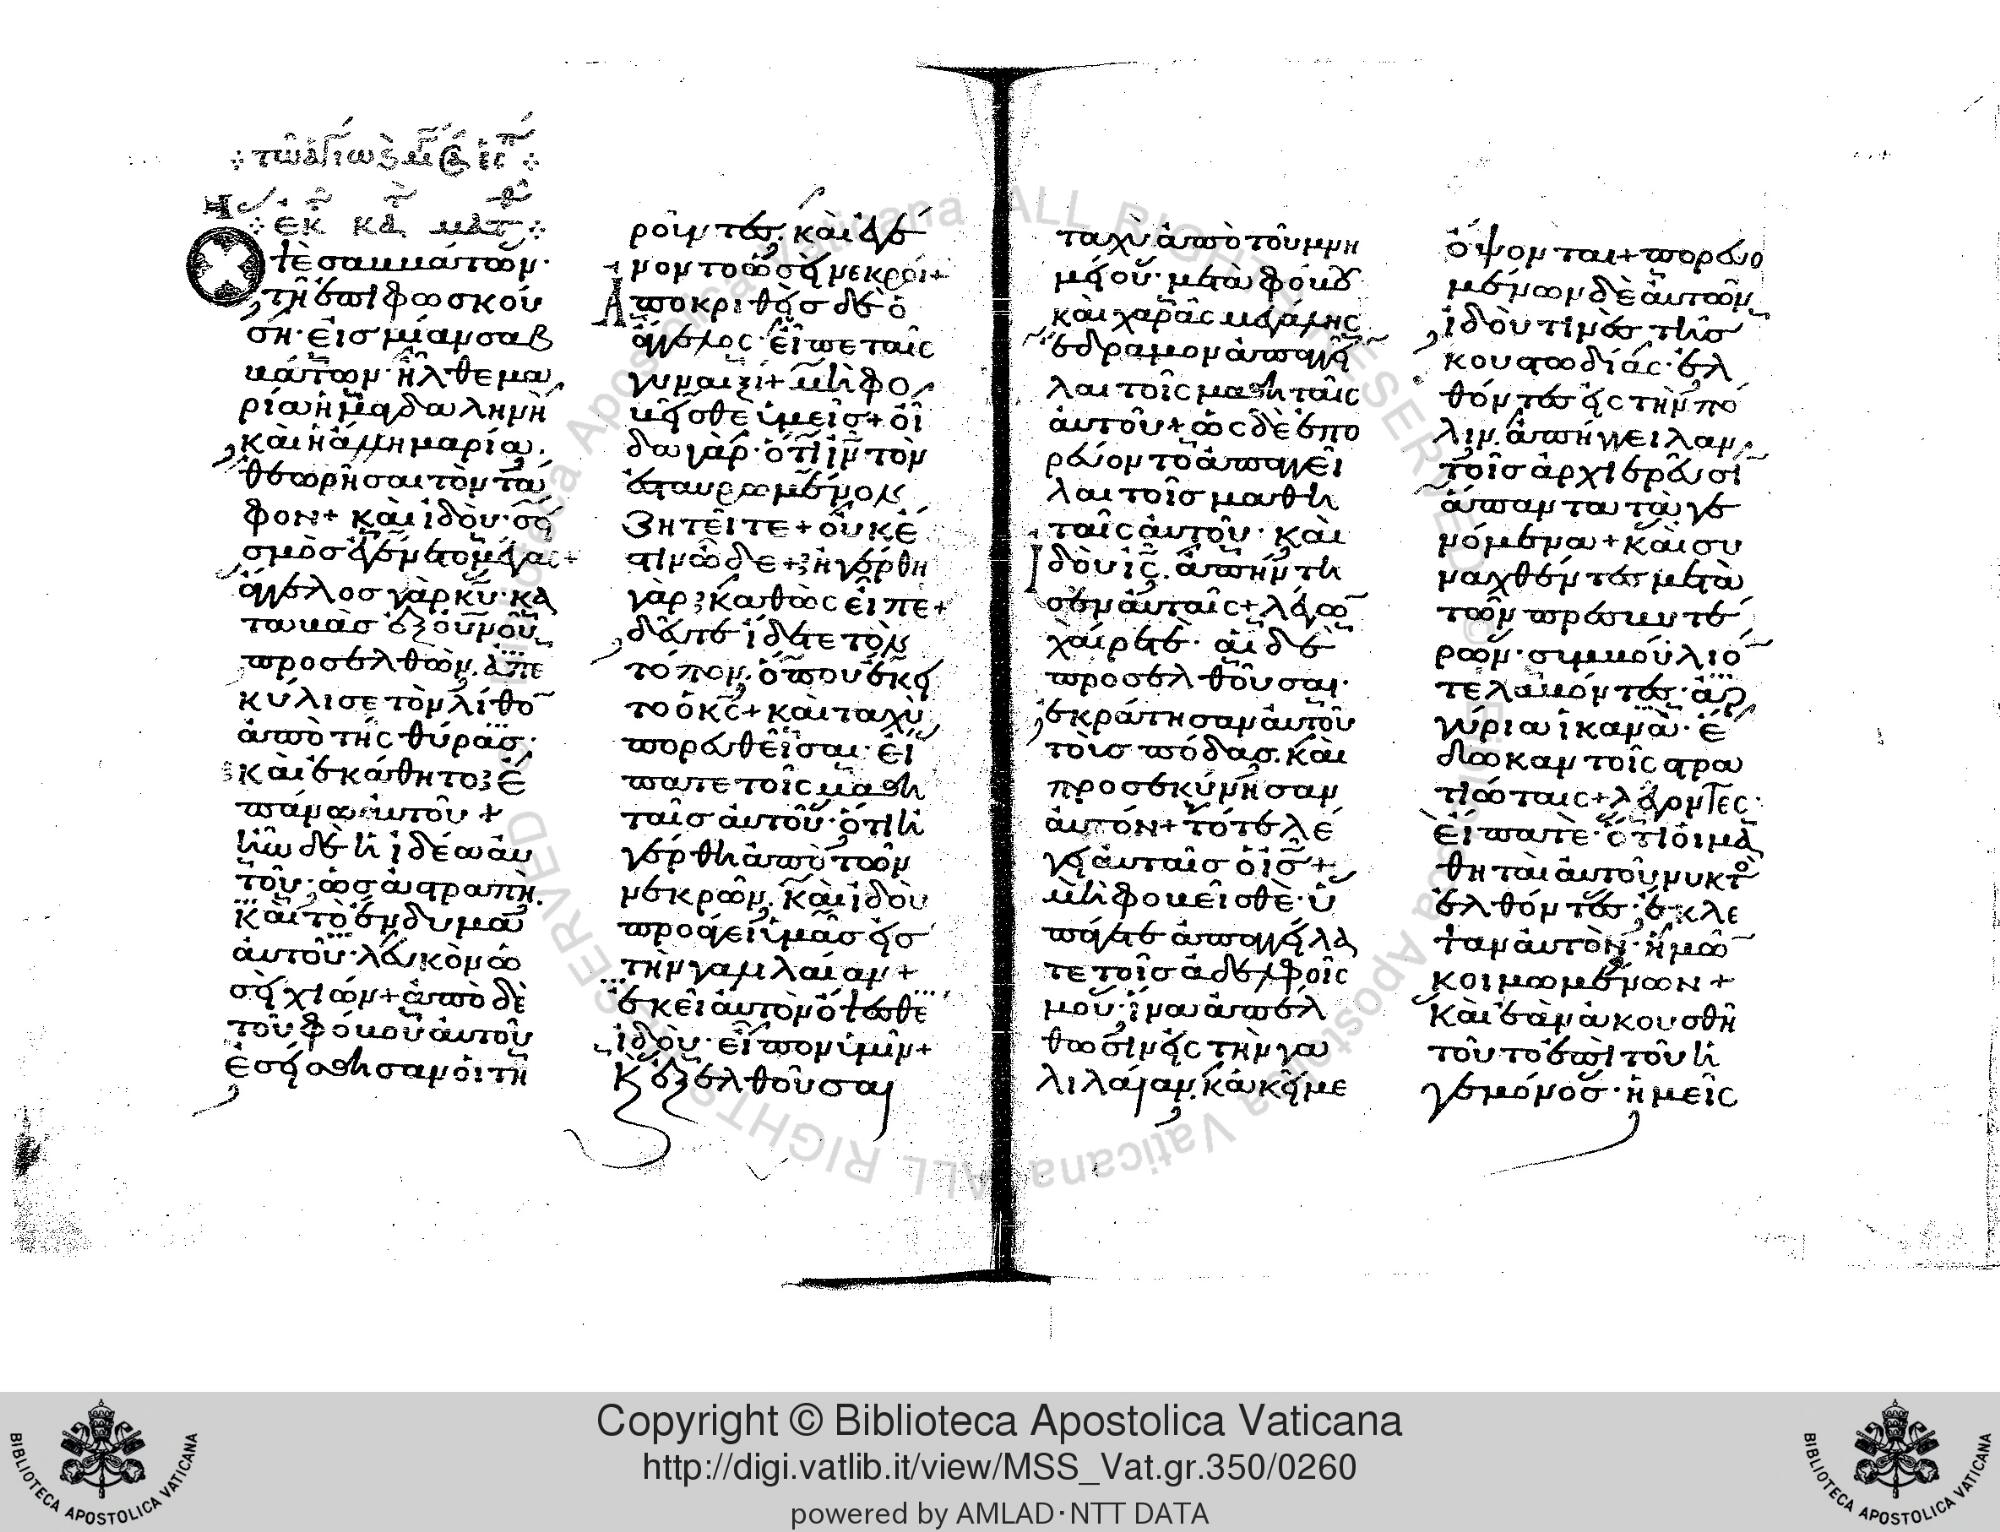 τῶ ἁγίω κ μεγ σα εἰς
ἐκ κα ματ
Οψὲ σαββάτων·
τῆ ἐπιφωσκού
ση· εἰς μίαν σαβ
βάτων· ἦλθε μα
ρία ἡ μαγδαληνὴ
καὶ ἡ ἄλλη μαρία.
θεωρῆσαι τὸν τά
φον+ καὶ ἰδοὺ· σει
σμὸς ἐγένετο μέγας+
ἄγγελος γὰρ κυ· κα
ταβὰς ἐξ οὐνοῦ
προσελθὼν. ἀπε
κύλισε τὸν λίθο
ἀπὸ τῆς θύρας·
καὶ ἐκάθητο ἐ
πάνω αὐτοῦ +
ἦν δὲ ἡ ἰδέα αὐ
τοῦ· ὡς ἀστραπὴ.
καὶ τὸ ἔνδυμα
αὐτοῦ· λευκὸν ὡ
σεὶ χιών+ ἀπὸ δὲ
τοῦ φόβου αὐτοῦ
ἐσείσθησαν οἱ τη
ροῦντες. καὶ ἐγέ
νοντο ὡσεὶ νεκροί+
Ἀποκριθεὶς δὲ ὁ
ἄγγελος· εἶπε ταῖς
γυναιξί+ μὴ φο
βεῖσθε ὑμεῖς+ οἶ
δα γὰρ· ὅτι ἰν τὸν
ἐσταυρωμένον
ζητεῖτε+ οὐκ ἔ
στιν ὧδε+ ἠγέρθη
γὰρ καθὼς εἶπε+
δεῦτε ἴδετε τὸν
τόπον. ὅπου ἔκει
το ὁ κς+ καὶ ταχὺ
πορευθεῖσαι· εἴ
πατε τοῖς μαθη
ταῖς αὐτοῦ· ὅτι ἠ
γέρθη ἀπὸ τῶν
νεκρῶν. καὶ ἰδοὺ
προάγει ὑμᾶς εἰς
τὴν γαλιλαίαν+
ἐκεῖ αὐτὸν ὄψεσθε
ἰδοὺ· εἶπον ὑμῖν+
Κ ἐξελθοῦσαι
ταχὺ ἀπὸ τοῦ μνη
μείου· μετὰ φόβου
καὶ χαρᾶς μεγάλης
ἔδραμον ἀπαγγεῖ
λαι τοῖς μαθηταῖς
αὐτοῦ+ ὡς δὲ ἐπο
ρεύοντο ἀπαγγεῖ
λαι τοῖς μαθη
ταῖς αὐτοῦ· καὶ
ἰδοὺ ις. ἀπήντη
σεν αὐταῖς+ λέγω
χαίρετε· αἱ δὲ
προσελθοῦσαι·
ἐκράτησαν αὐτοῦ
τοὺς πόδας. καὶ
προσεκύνησαν
αὐτόν+ τότε λέ
γει αὐταῖς ὁ ις+
μὴ φοβεῖσθε· ὑ
πάγετε ἀπαγγείλα
τε τοῖς ἀδελφοῖς
μου· ἵνα ἀπέλ
θωσιν εἰς τὴν γα
λιλαίαν. κἀκεῖ με
ὄψονται+ πορευο
μένων δὲ αὐτῶν
ἰδοὺ τινὲς τῆς
κουστωδίας· ἐλ
θόντες εἰς τὴν πό
λιν. ἀπήγγειλαν
τοῖς ἀρχιερεῦσι
ἅπαντα τὰ γε
νόμενα+ καὶ συ
ναχθέντες μετὰ
τῶν πρεσβυτέ
ρων· συμβούλιο
τε λαβόντες· ἀρ
γύρια ἱκανὰ· ἔ
δωκαν τοῖς στρα
τιώταις+ λέγοντες·
εἴπατε· ὅτι οἱ μα
θηταὶ αὐτοῦ νυκτὸ
ἐλθόντες· ἔκλε
ψαν αὐτὸν· ἡμῶ
κοιμωμένων+
καὶ ἐὰν ἀκουσθῆ
τοῦτο ἐπὶ τοῦ ἡ
γεμόνος· ἡμεῖς
Copyright © Biblioteca Apostolica Vaticana
http://digi.vatlib.it/view/MSS_Vat.gr.350/0260
powered by AMLAD·NTT DATA
BIBLIOTECA APOSTOLICA VATICANA
BIBLIOTECA APOSTOLICA VATICANA